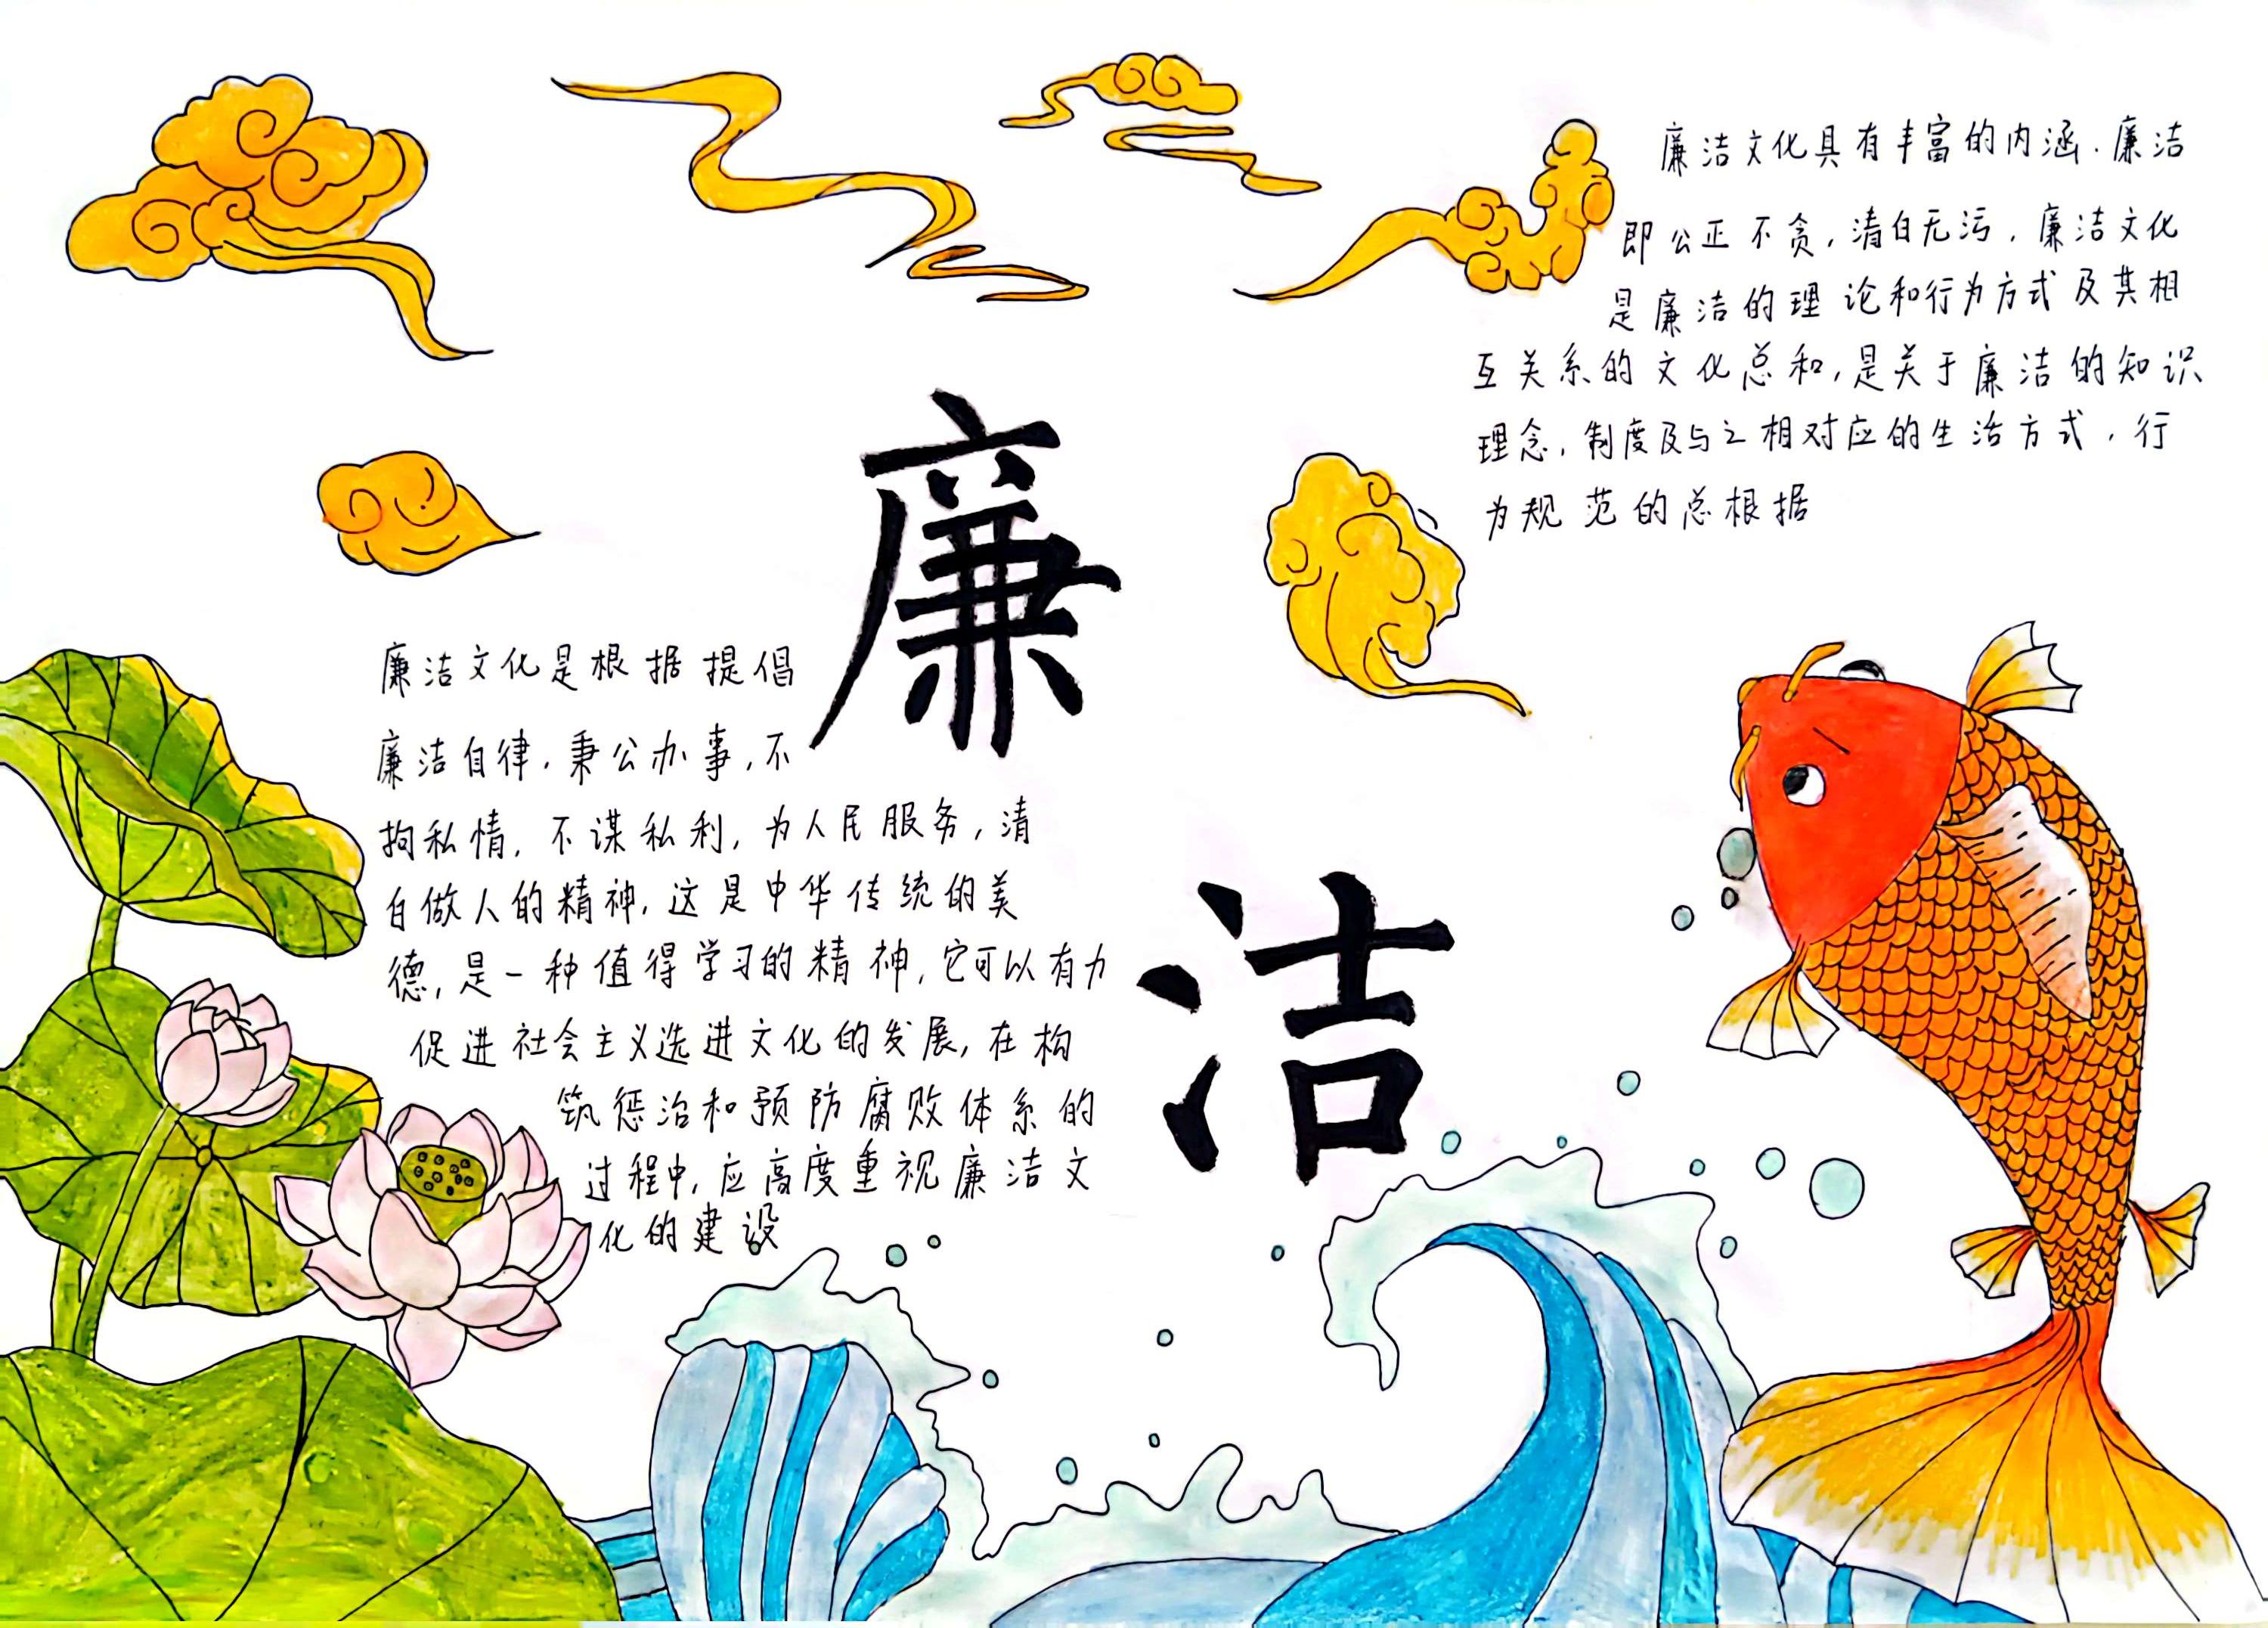 廉洁文化具有丰富的内涵.廉洁
即公正不贪,清白无污,廉洁文化
是廉洁的理论和行为方式及其相
互关系的文化总和,是关于廉洁的知识
理念,制度及与之相对应的生活方式,行
为规范的总根据
廉
洁
廉洁文化是根据提倡
廉洁自律,秉公办事,不
拘私情,不谋私利,为人民服务,清
白做人的精神,这是中华传统的美
德,是一种值得学习的精神,它可以有力
促进社会主义选进文化的发展,在构
筑惩治和预防腐败体系的
过程中,应高度重视廉洁文
化的建设